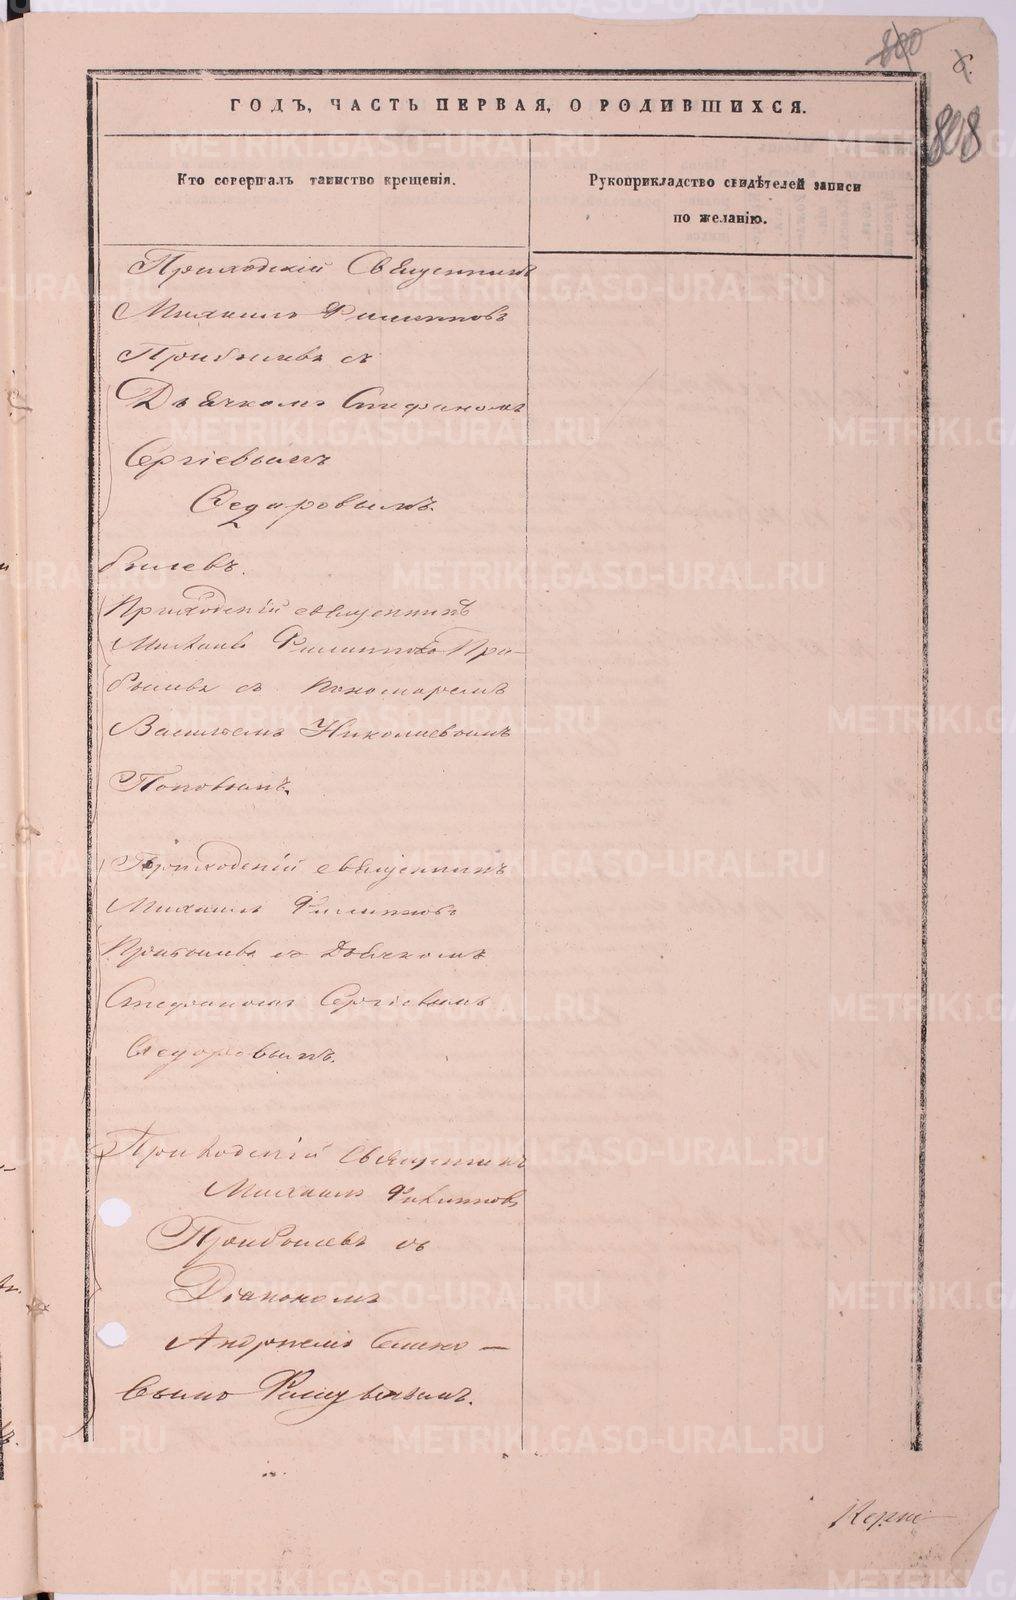 800
808
ГОДЪ, ЧАСТЬ ПЕРВАЯ, О РОДИВШИХСЯ.
Кто совершалъ таинство крещенія.
Рукоприкладство свидѣтелей записи
по желанію.
Приходскій Священникъ
Михаилъ Филипповъ
Прибылевъ съ
Дьячкомъ Стефаномъ
Сергіевымъ
Ѳедоровымъ.
былевъ.
Приходскій священникъ
Михаилъ Филипповъ При-
былевъ съ Пономаремъ
Василіемъ Николаевымъ
Поповымъ.
Приходскій священникъ
Михаилъ Филипповъ
Прибылевъ съ Дьячкомъ
Стефаномъ Сергіевымъ
Ѳедоровымъ.
Приходскій Священникъ
Михаилъ Филипповъ
Прибылевъ съ
Діакономъ
Андреемъ
METRIKI.GASO-URAL.RU